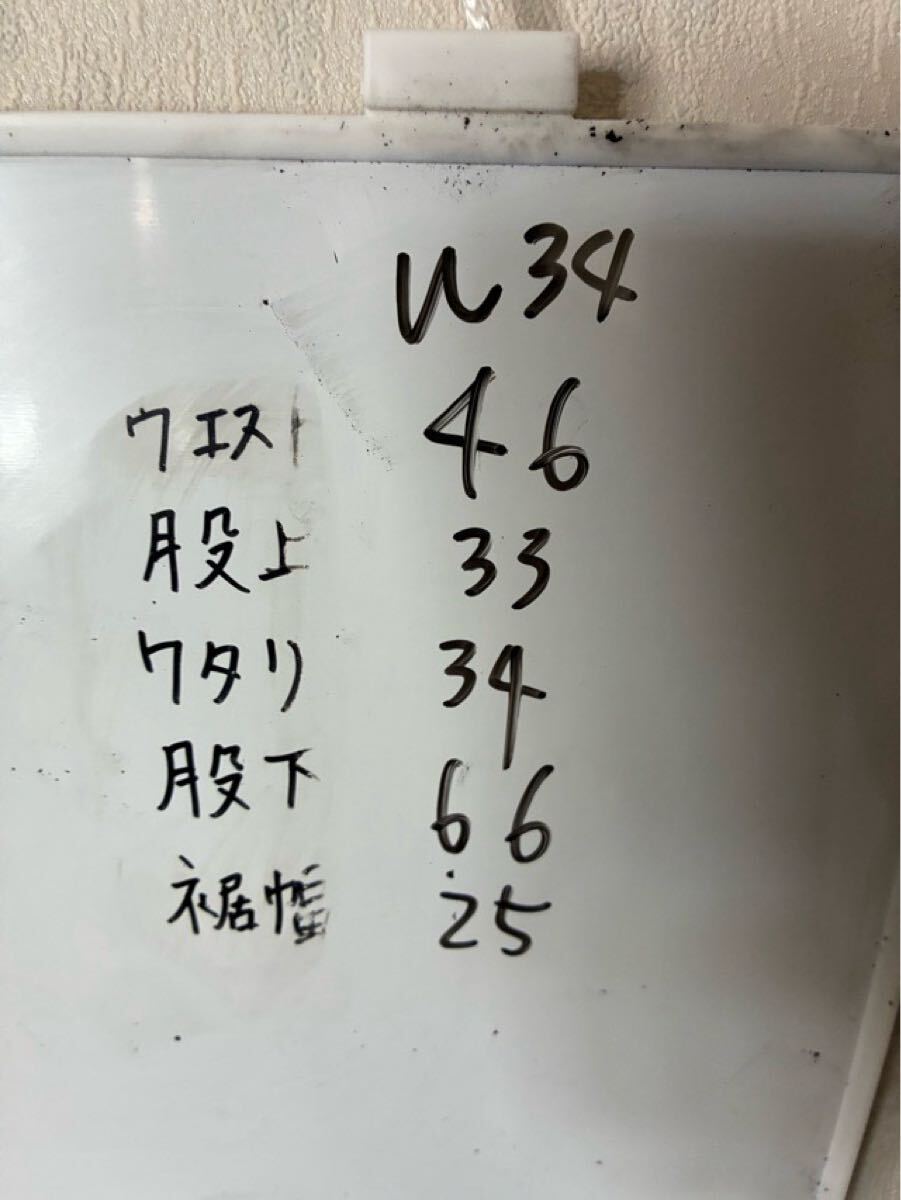 W34
ウエスト 46
股上 33
ワタリ 34
股下 66
裾幅 25